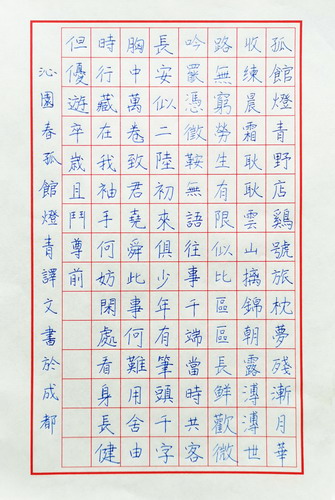 孤館燈青野店鷄號旅枕夢殘漸月華
收練晨霜耿耿雲山摛錦朝露漙漙世
路無窮勞生有限似比區區長鮮歡微
吟罷憑徵鞍無語往事千端當時共客
長安似二陸初來俱少年有筆頭千字
胸中萬卷致君堯舜此事何難用舍由
時行藏在我袖手何妨閑處看身長健
但優遊卒歲且鬥尊前
沁園春孤館燈青譯文書於成都